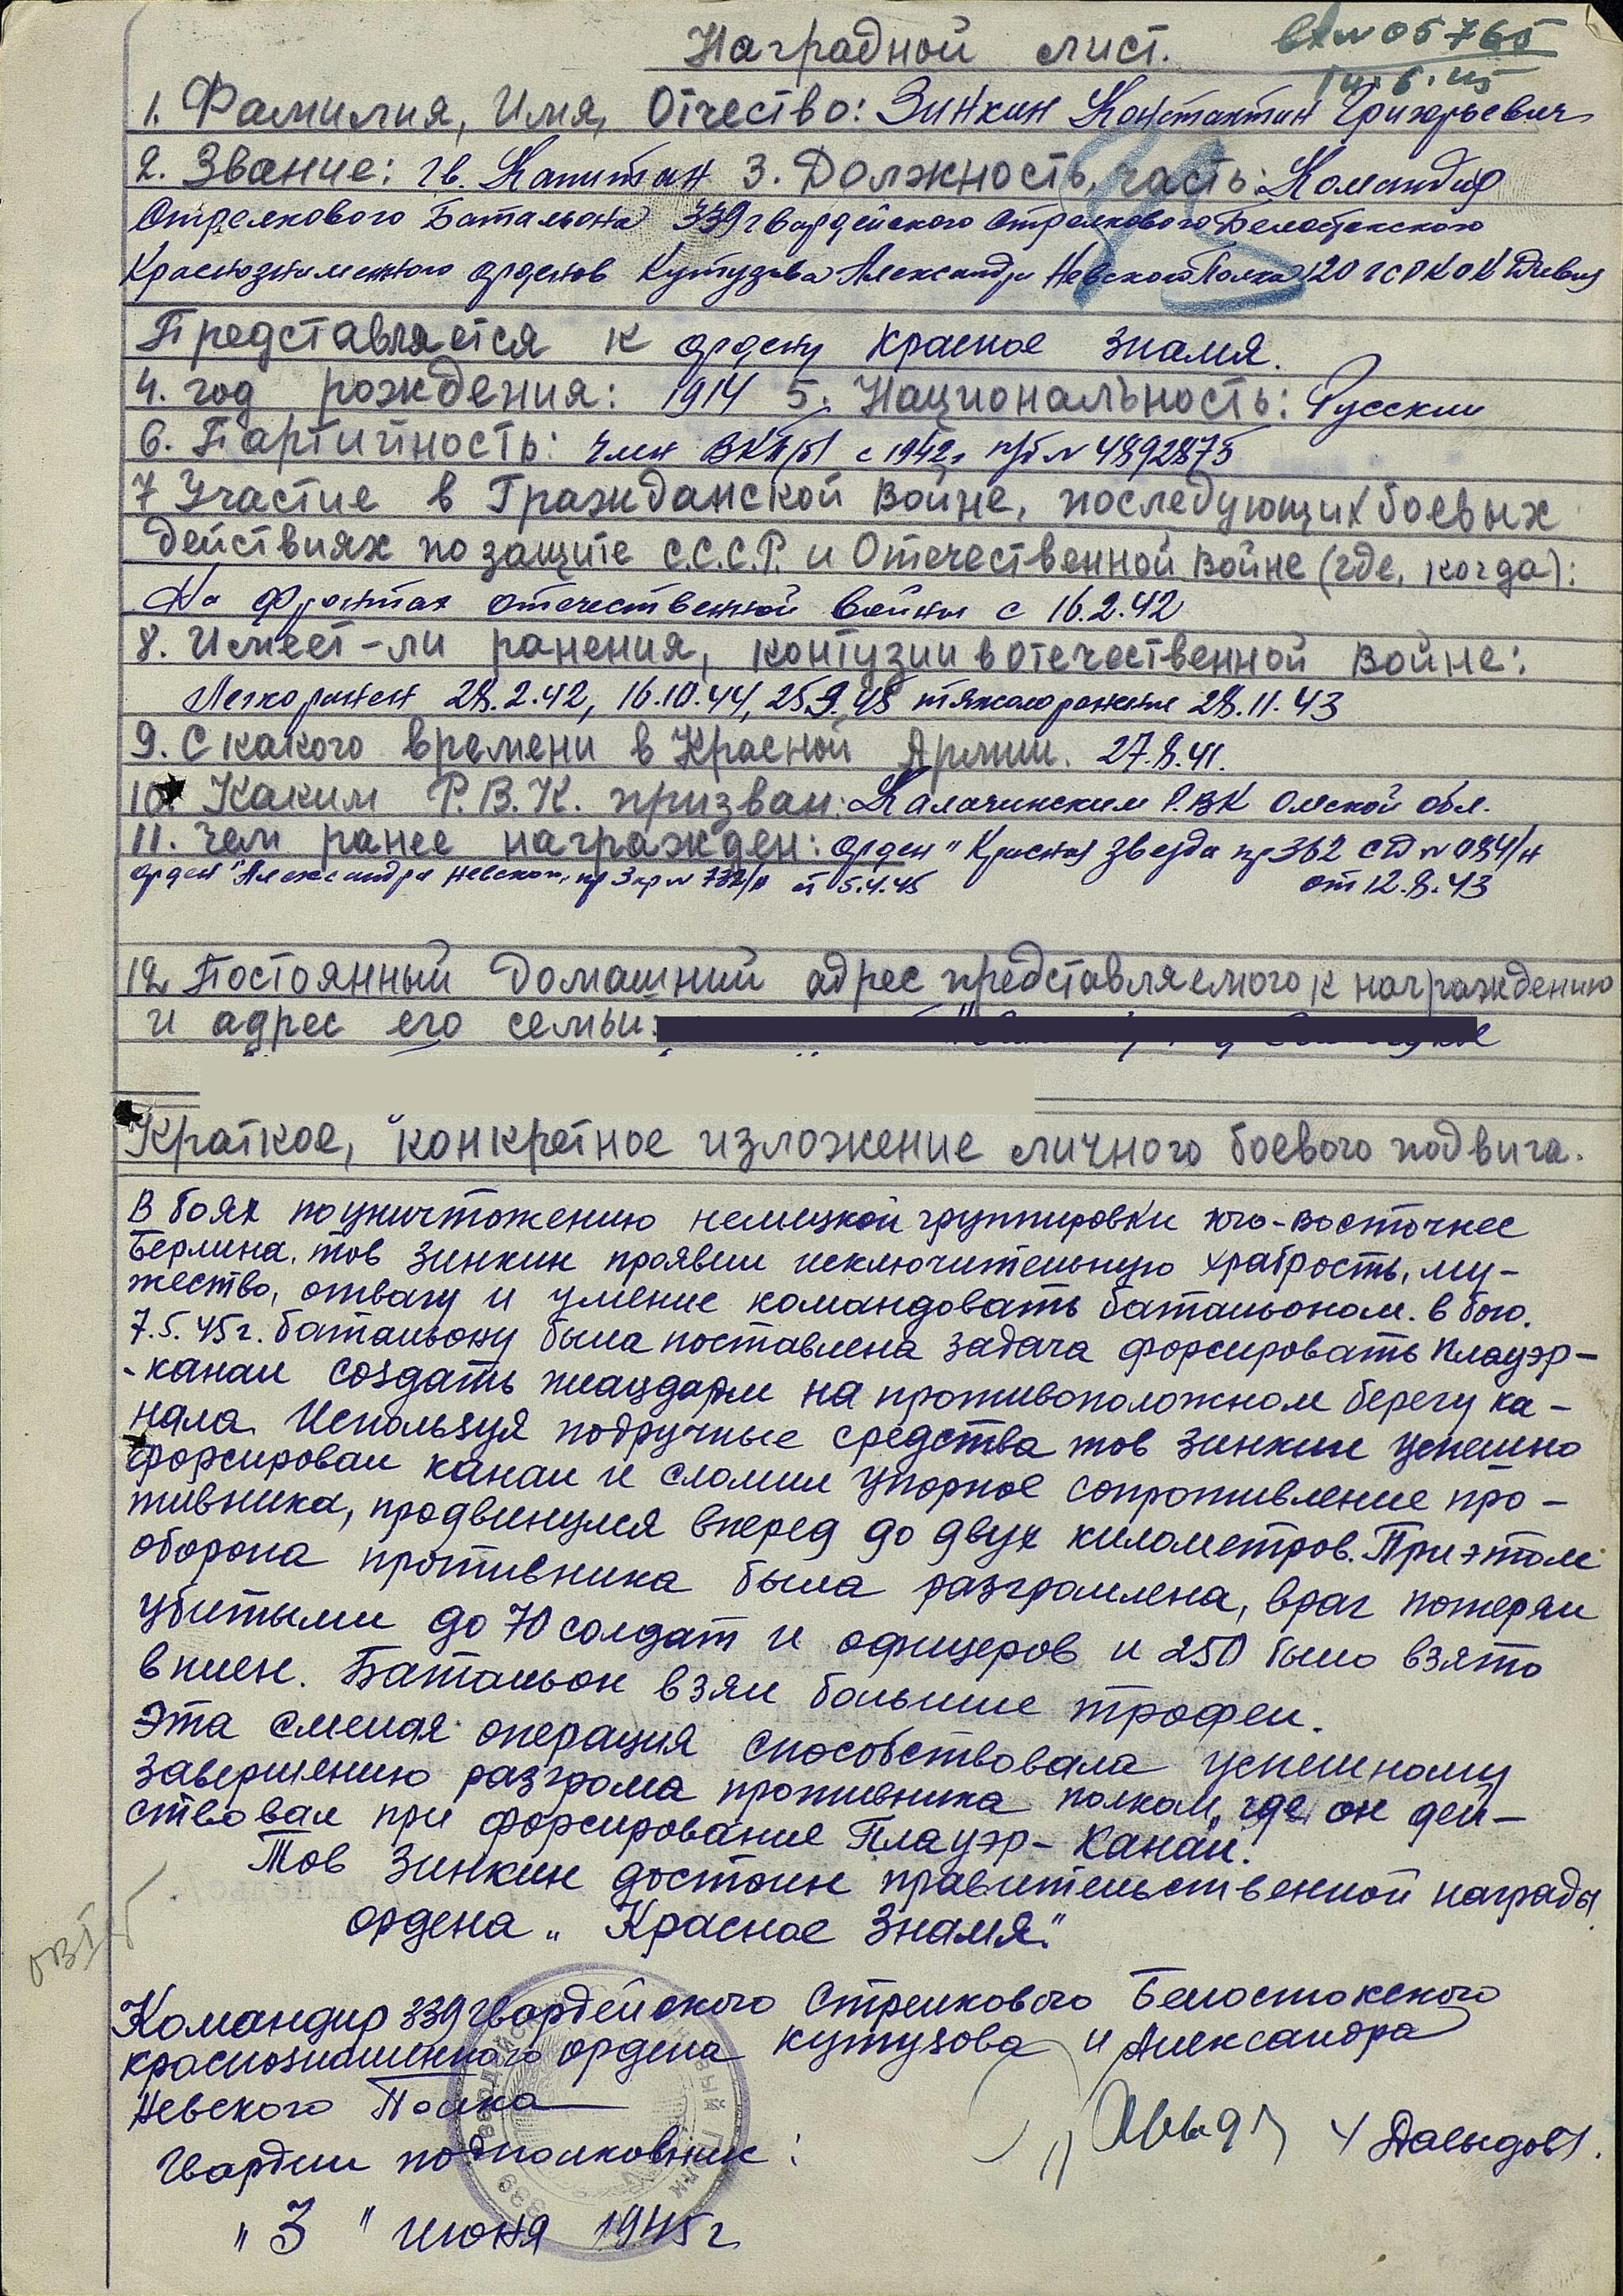 Наградной лист.
вх № 05765
1. Фамилия, Имя, Отчество: Зинкин Константин Григорьевич
2. Звание: гв. Капитан 3. Должность, часть: Командир
Стрелкового Батальона 339 гвардейского стрелкового Белостокского
Краснознаменного орденов Кутузова Александра Невского Полка 120 гсРКОК Дивиз
Представляется к ордену Красное Знамя.
4. год рождения: 1914 5. Национальность: Русский
6. Партийность: член ВКП(б) с 1942г п/б № 4892875
7 Участие в Гражданской Войне, последующих боевых
действиях по защите С.С.С.Р. и Отечественной Войне (где, когда):
На фронтах отечественной войны с 16.2.42
8. Имеет-ли ранения, контузии в отечественной войне:
Легко ранен 28.2.42, 16.10.44, 25 45 тяжело ранен 28.11.43
9. С какого времени в Красной Армии. 27.8.41.
10. Каким Р.В.К. призван: Калачинским Р.ВК Омской обл.
11. Чем ранее награжден: орден "Красная Звезда пр 362 сд № 084/н
орден "Александра Невского, пр 3 № 732/н от 5.4.45 от 12.8.43
12 Постоянный домашний адрес представляемого к награждению
и адрес его семьи:
Краткое, конкретное изложение личного боевого подвига.
В боях по уничтожению немецкой группировки юго-восточнее
Берлина. тов Зинкин проявил исключительную храбрость, му-
жество, отвагу и умение командовать батальоном. в бою.
7.5.45г. батальону была поставлена задача форсировать Плауэр-
-канал создать плацдарм на противоположном берегу ка-
нала. Используя подручные средства тов Зинкин успешно
форсировал канал и сломил упорное сопротивление про-
тивника, продвинулся вперед до двух километров. При этом
оборона противника была разгромлена, враг потерял
убитыми до 70 солдат и офицеров и 250 было взято
в плен. Батальон взял большие трофеи.
Эта смелая операция способствовала успешному
завершению разгрома противника полком, где он дей-
ствовал при форсирование Плауэр-Канал.
Тов Зинкин достоин правительственной награды
ордена „Красное Знамя."
Командир 339 гвардейского Стрелкового Белостокского
краснознаменного ордена Кутузова и Александра
Невского Полка
Гвардии подполковник: / Давыдов /.
„3" июня 1945г